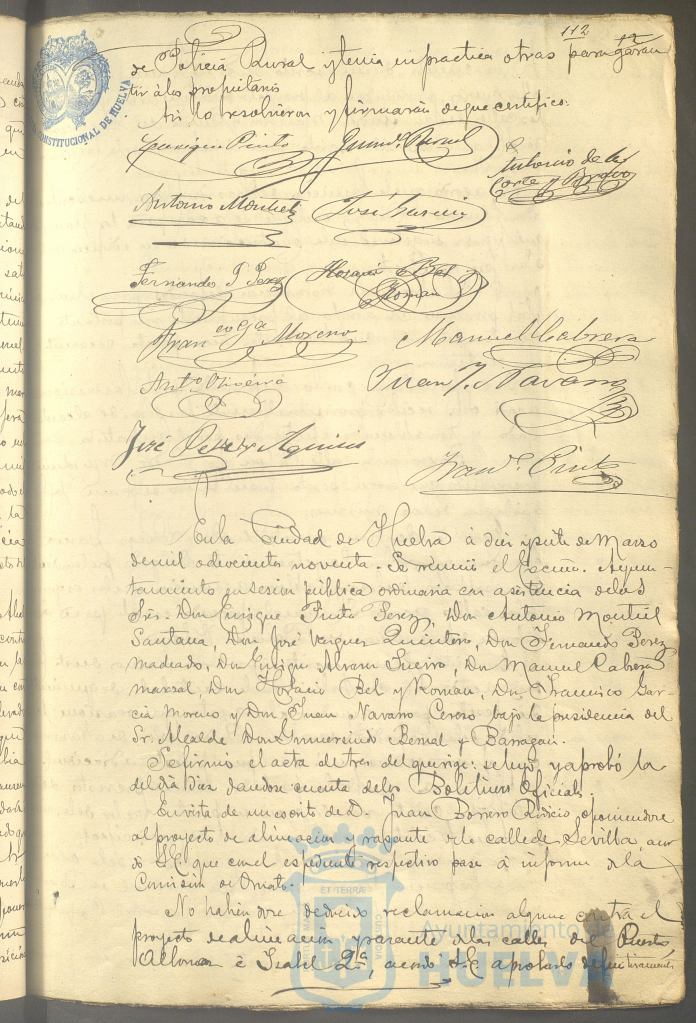 112
12
de Policia Rural y tenia en practica otras para garan
tir á los propietarios
Asi lo resolvieron y firmarán de que certifico.
Enrique Pinto Gumdo. Bernal
Antonio de la
Corte y Bravo
Antonio Montiel José Garcia
Fernando P Perez Horacio Bel
Roman
Franco Ga Moreno Manuel Cabrera
Anto Oliveira Juan J. Navarro
José Perez
Franco. Pinto
En la Ciudad de Huelva á diez y siete de Marzo
de mil ochocientos noventa. Se reunió el Excmo. Ayun-
tamiento en sesion pública ordinaria con asistencia de los
Sres. Don Enrique Pinto Perez, Don Antonio Montiel
Santana, Don José Vazquez Quintero, Don Fernando Perez
Machado, Don Enrique Alvarez Sueiro, Don Manuel Cabrera
Marzal, Don Horacio Bel y Roman, Don Francisco Gar-
cia Moreno y Don Juan Navarro Cerezo bajo la presidencia del
Sr. Alcalde Don Gumersindo Bernal y Barragan.
Se firmó el acta de tres del que rige: se leyó y aprobó la
del dia diez dandose cuenta de los Boletines Oficiales.
En vista de un escrito de D. Juan Borrero oponiendose
al proyecto de alineacion y rasante de la calle de Sevilla, acor
dó S.E. que con el espediente respectivo pase á informe de la
Comision de Ornato.
No habiendose deducido reclamacion alguna contra el
proyecto de alineacion y rasante de las calles del Puerto,
é Isabel 2ª, acordó S.E. aprobarlo definitivamente
CONSTITUCIONAL DE HUELVA
ET TERRÆ
Ayuntamiento de
HUELVA